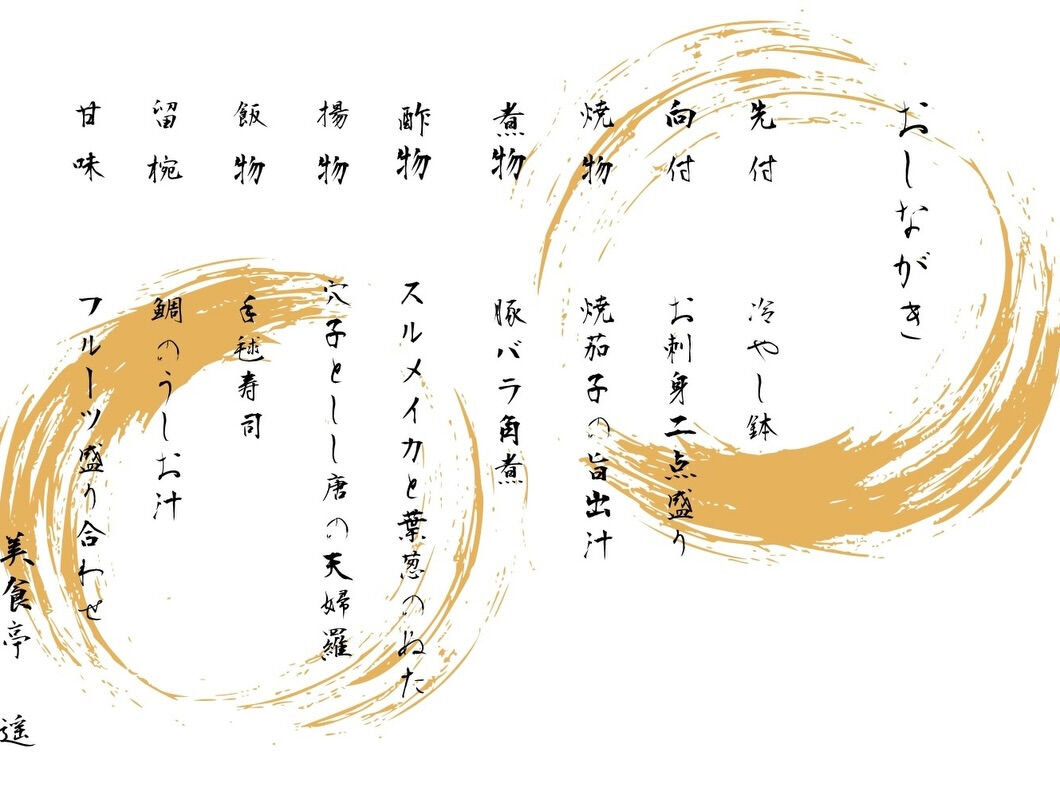 おしながき
先付 冷やし鉢
向付 お刺身二点盛り
焼物 焼茄子の旨出汁
煮物 豚バラ角煮
酢物 スルメイカと葉葱のぬた
揚物 穴子としし唐の天婦羅
飯物 手毬寿司
留椀 鯛のうしお汁
甘味 フルーツ盛り合わせ
美食亭 遥